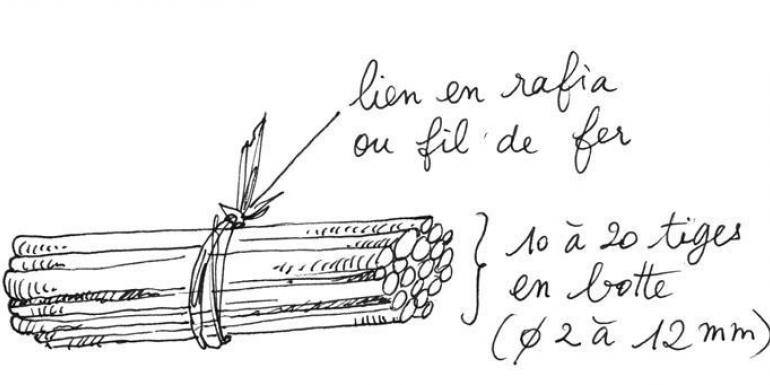 lien en rafia
ou fil de fer
10 à 20 tiges
en botte
(ϕ 2 à 12 mm)